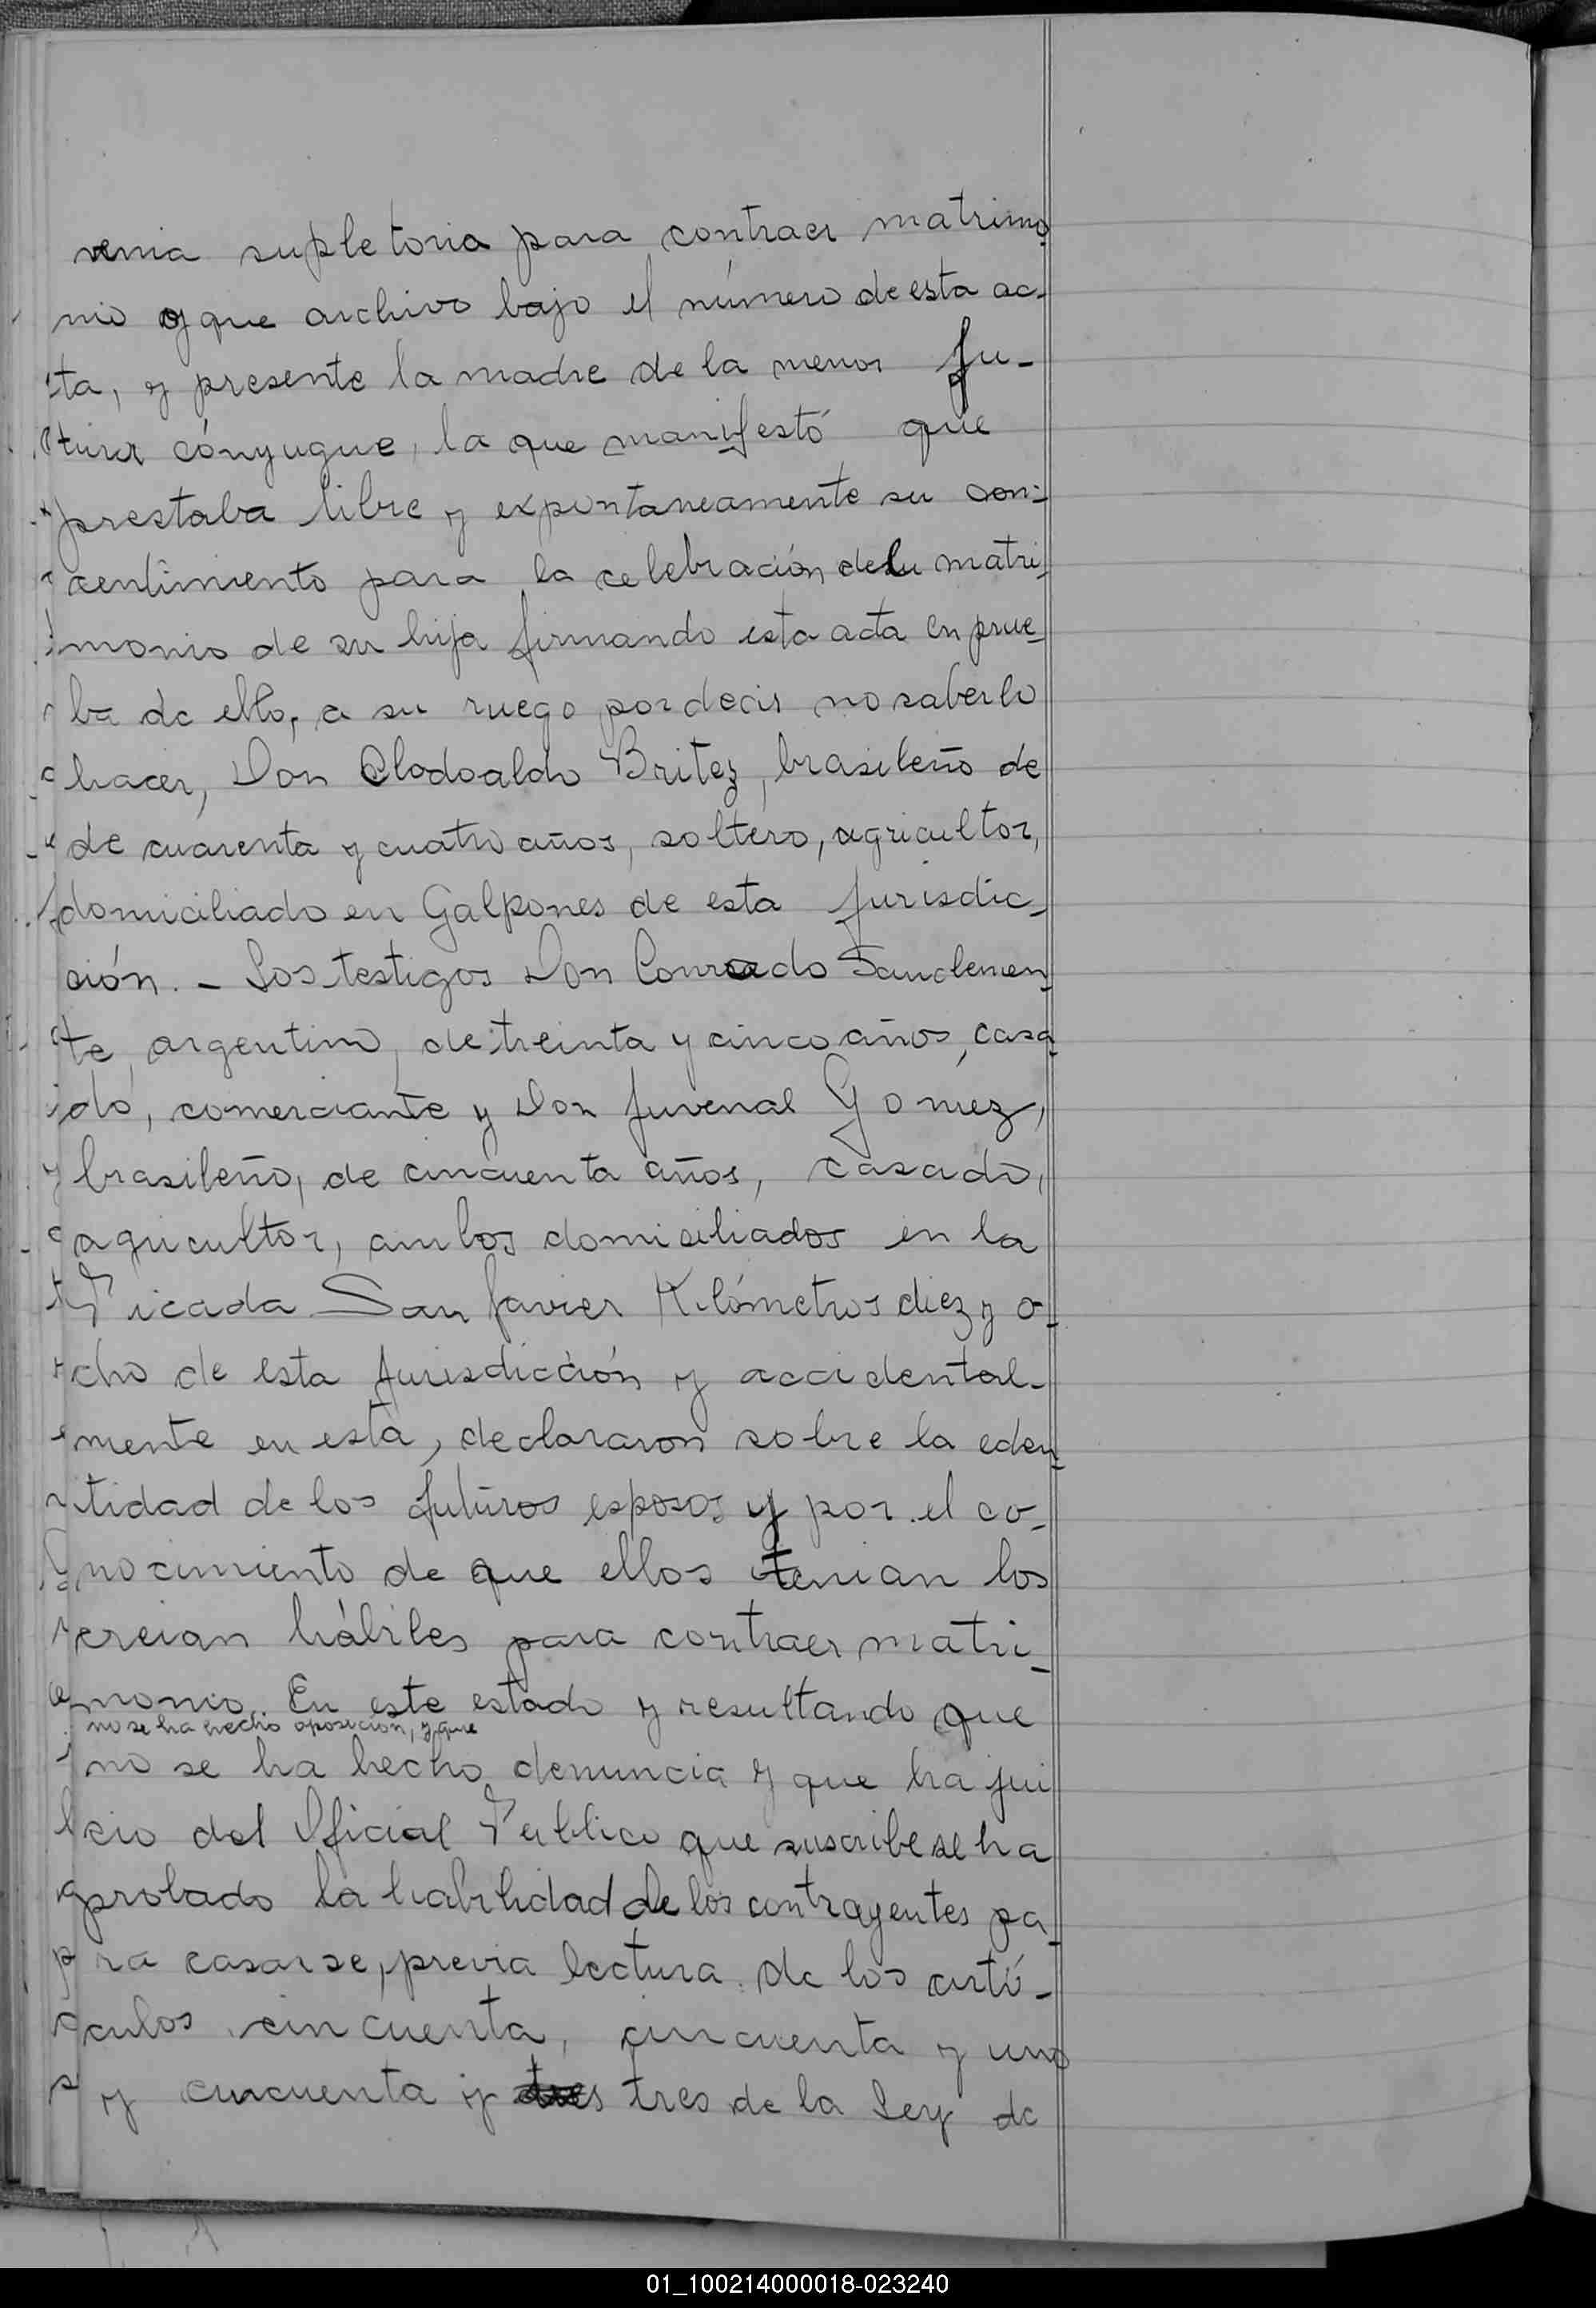 venia supletoria para contraer matrimo-
nio y que archivo bajo el número de esta ac-
ta, y presente la madre de la menor fu-
tura cónyugue, la que manifestó que
prestaba libre y expontaneamente su con-
centimiento para la celebración del matri-
monio de su hija firmando esta acta en prue-
ba de ello, a su ruego por decir no saberlo
hacer, Don Clodoaldo Britez, brasileño de
de cuarenta y cuatro años, soltero, agricultor,
domiciliado en Galpones de esta Jurisdic-
ción. - Los testigos Don Conrado Sanclemen-
te, argentino, de treinta y cinco años, casa-
do, comerciante y Don Juvenal Gómez,
brasileño, de cincuenta años, casado,
agricultor, ambos domisiliados en la
Picada San Javier Kilómetros diez y o-
cho de esta Jurisdicción y accidental-
mente en esta, declararon sobre la eden-
tidad de los futuros esposos y por el co-
nocimiento de que ellos tenian los
creian hábiles para contraer matri-
monio. En este estado y resultando que
no se ha hecho oposición, y que
no se ha hecho denuncia y que ha jui
cio del Oficial Publico que suscribe se ha
probado la habilidad de los contrayentes pa-
ra casarse, previa lectura de los artí-
culos cincuenta, cincuenta y uno
y cincuenta y tres de la Ley de
01_100214000018-023240